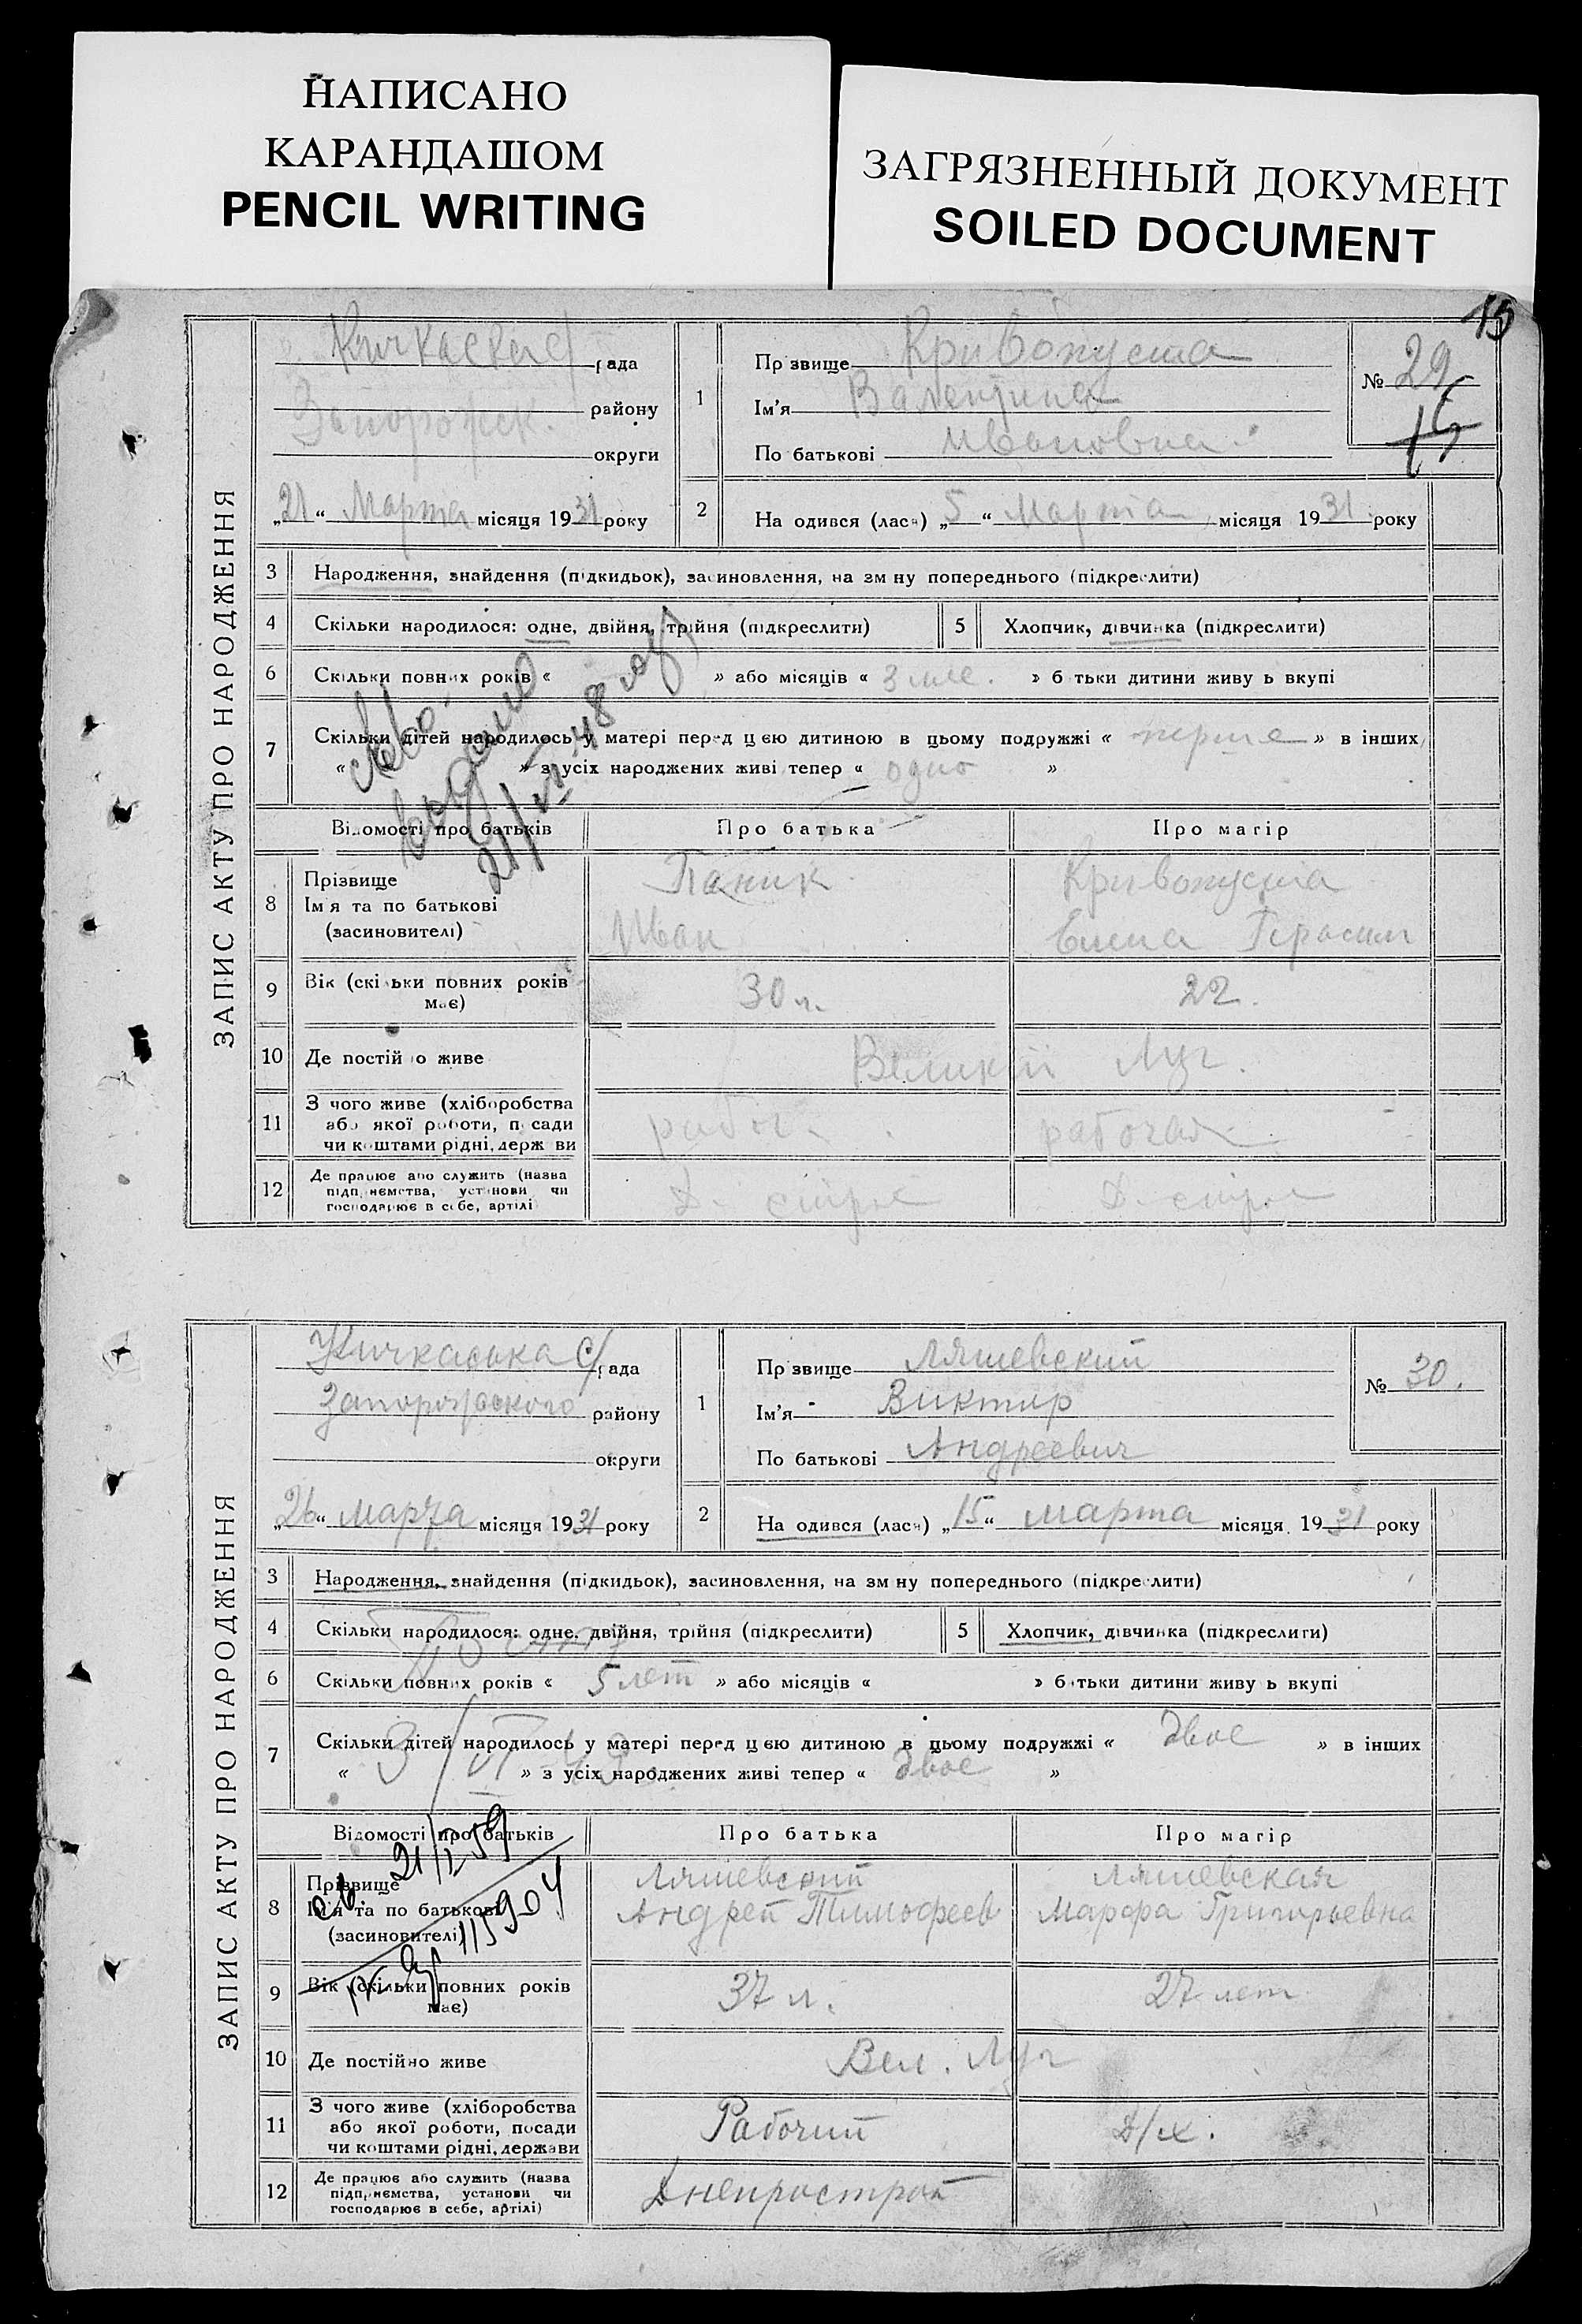 НАПИСАНО
КАРАНДАШОМ
PENCIL WRITING
ЗАГРЯЗНЕННЫЙ ДОКУМЕНТ
SOILED DOCUMENT
15
ЗАПИС АКТУ ПРО НАРОДЖЕННЯ
рада
Запорожск. району
округи
„21“ Марта місяця 1931 року
1
Прізвище Кривопуста
Ім'я Валентина
По батькові Ивановна
№ 29
15
2
На одився (лася) „5“ Марта місяця 1931 року
3 Народження, знайдення (підкидьок), засиновлення, на зм ну попереднього (підкреслити)
4 Скільки народилося: одне, двійня, трійня (підкреслити)
5 Хлопчик, дівчинка (підкреслити)
6 Скільки повних років « » або місяців « 3 мес. » б тьки дитини живу ь вкупі
7 Скільки дітей народилось у матері перед цею дитиною в цьому подружжі « перше » в інших
« » з усіх народжених живі тепер « одно »
Відомості про батьків Про батька Про матір
8 Прізвище
Ім'я та по батькові
(засиновителі)
Паник
Иван
Кривопуста
Елена Герасим
9 Вік (скільки повних років
має)
30 л.
22.
10 Де постій о живе
Великий Луг.
11 З чого живе (хліборобства
або якої роботи, посади
чи коштами рідні, держ ви
рабоч.
рабочая
12 Де працює або служить (назва
підприємства, установи чи
господарює в себе, артілі
Д. стр
Д. стр
ЗАПИС АКТУ ПРО НАРОДЖЕННЯ
Кичкаська с/рада
Запорожского району
округи
„26“ марта місяця 1931 року
1
Прізвище Ляшевский
Ім'я Виктор
По батькові Андреевич
№ 30.
2
На одився (лася) „15“ марта місяця 1931 року
3 Народження, знайдення (підкидьок), засиновлення, на зм ну попереднього (підкреслити)
4 Скільки народилося: одне, двійня, трійня (підкреслити)
5 Хлопчик, дівчинка (підкреслити)
6 Скільки повних років « 5 лет » або місяців « » б тьки дитини живу ь вкупі
7 Скільки дітей народилось у матері перед цею дитиною в цьому подружжі « двое » в інших
« » з усіх народжених живі тепер « двое »
Відомості про батьків Про батька Про матір
8 Прізвище
Ім'я та по батькові
(засиновителі)
Ляшевский
Андрей Тимофеев
Ляшевская
Марфа Григорьевна
9 Вік (скільки повних років
має)
37 л.
27 лет
10 Де постійно живе
Вел. Луг
11 З чого живе (хліборобства
або якої роботи, посади
чи коштами рідні, держави
Рабочий
Д/х.
12 Де працює або служить (назва
підприємства, установи чи
господарює в себе, артілі)
Днепрострой